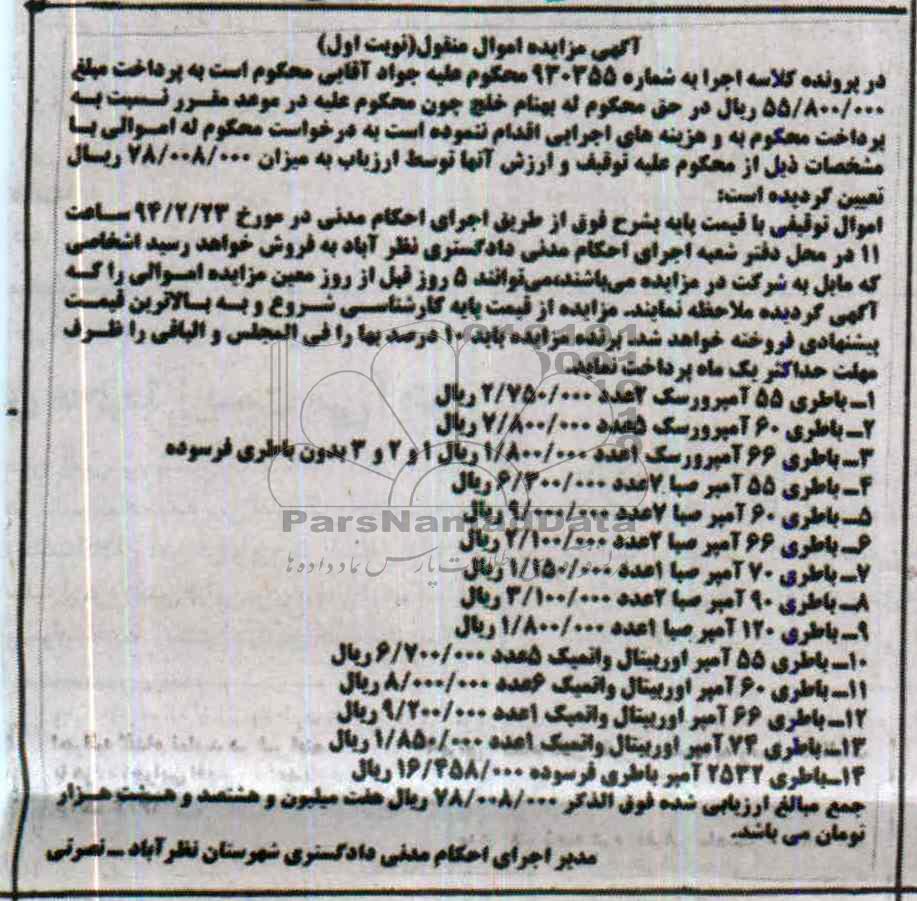 آگهی مزایده اموال منقول(نوبت اول)
در پرونده کلاسه اجرا به شماره ۹۳۰۳۵۵ محکوم علیه جواد آقایی محکوم است به پرداخت مبلغ
۵۵/۸۰۰/۰۰۰ ریال در حق محکوم له بهنام خلج چون محکوم علیه در موعد مقرر نسبت به
پرداخت محکوم به و هزینه های اجرایی اقدام ننموده است به درخواست محکوم له اموالی با
مشخصات ذیل از محکوم علیه توقیف و ارزش آنها توسط ارزیاب به میزان ۷۸/۰۰۸/۰۰۰ ریال
تعیین گردیده است:
اموال توقیفی با قیمت پایه بشرح فوق از طریق اجرای احکام مدنی در مورخ ۹۴/۲/۲۳ ساعت
۱۱ در محل دفتر شعبه اجرای احکام مدنی دادگستری نظر آباد به فروش خواهد رسید اشخاصی
که مایل به شرکت در مزایده می‌باشند،می‌توانند ۵ روز قبل از روز معین مزایده اموالی را که
آگهی گردیده ملاحظه نمایند. مزایده از قیمت پایه کارشناسی شروع و به بالاترین قیمت
پیشنهادی فروخته خواهد شد. برنده مزایده باید ۱۰ درصد بها را فی المجلس و الباقی را ظرف
مهلت حداکثر یک ماه پرداخت نماید.
۱ـ باطری ۵۵ آمپرورسک ۲عدد ۲/۷۵۰/۰۰۰ ریال
۲ـ باطری ۶۰ آمپرورسک ۵عدد ۷/۸۰۰/۰۰۰ ریال
۳ـ باطری ۶۶ آمپرورسک ۱عدد ۱/۸۰۰/۰۰۰ ریال ۱ و ۲ و ۳ بدون باطری فرسوده
۴ـ باطری ۵۵ آمپر صبا ۷عدد ۶/۳۰۰/۰۰۰ ریال
۵ـ باطری ۶۰ آمپر صبا ۷عدد ۹/۰۰۰/۰۰۰ ریال
۶ـ باطری ۶۶ آمپر صبا ۲عدد ۲/۱۰۰/۰۰۰ ریال
۷ـ باطری ۷۰ آمپر صبا ۱عدد ۱/۱۵۰/۰۰۰ ریال
۸ـ باطری ۹۰ آمپر صبا ۲عدد ۳/۱۰۰/۰۰۰ ریال
۹ـ باطری ۱۲۰ آمپر صبا ۱عدد ۱/۸۰۰/۰۰۰ ریال
۱۰ـ باطری ۵۵ آمپر اوربیتال واتمیک ۵عدد ۶/۷۰۰/۰۰۰ ریال
۱۱ـ باطری ۶۰ آمپر اوربیتال واتمیک ۶عدد ۸/۰۰۰/۰۰۰ ریال
۱۲ـ باطری ۶۶ آمپر اوربیتال واتمیک ۱عدد ۹/۲۰۰/۰۰۰ ریال
۱۳ـ باطری ۷۴ آمپر اوربیتال واتمیک ۱عدد ۱/۸۵۰/۰۰۰ ریال
۱۴ـ باطری ۲۵۳۲ آمپر باطری فرسوده ۱۶/۴۵۸/۰۰۰ ریال
جمع مبالغ ارزیابی شده فوق الذکر ۷۸/۰۰۸/۰۰۰ ریال هفت میلیون و هشتصد و هشت هزار
تومان می باشد.
مدیر اجرای احکام مدنی دادگستری شهرستان نظرآباد ـ نصرتی
ParsNamadData